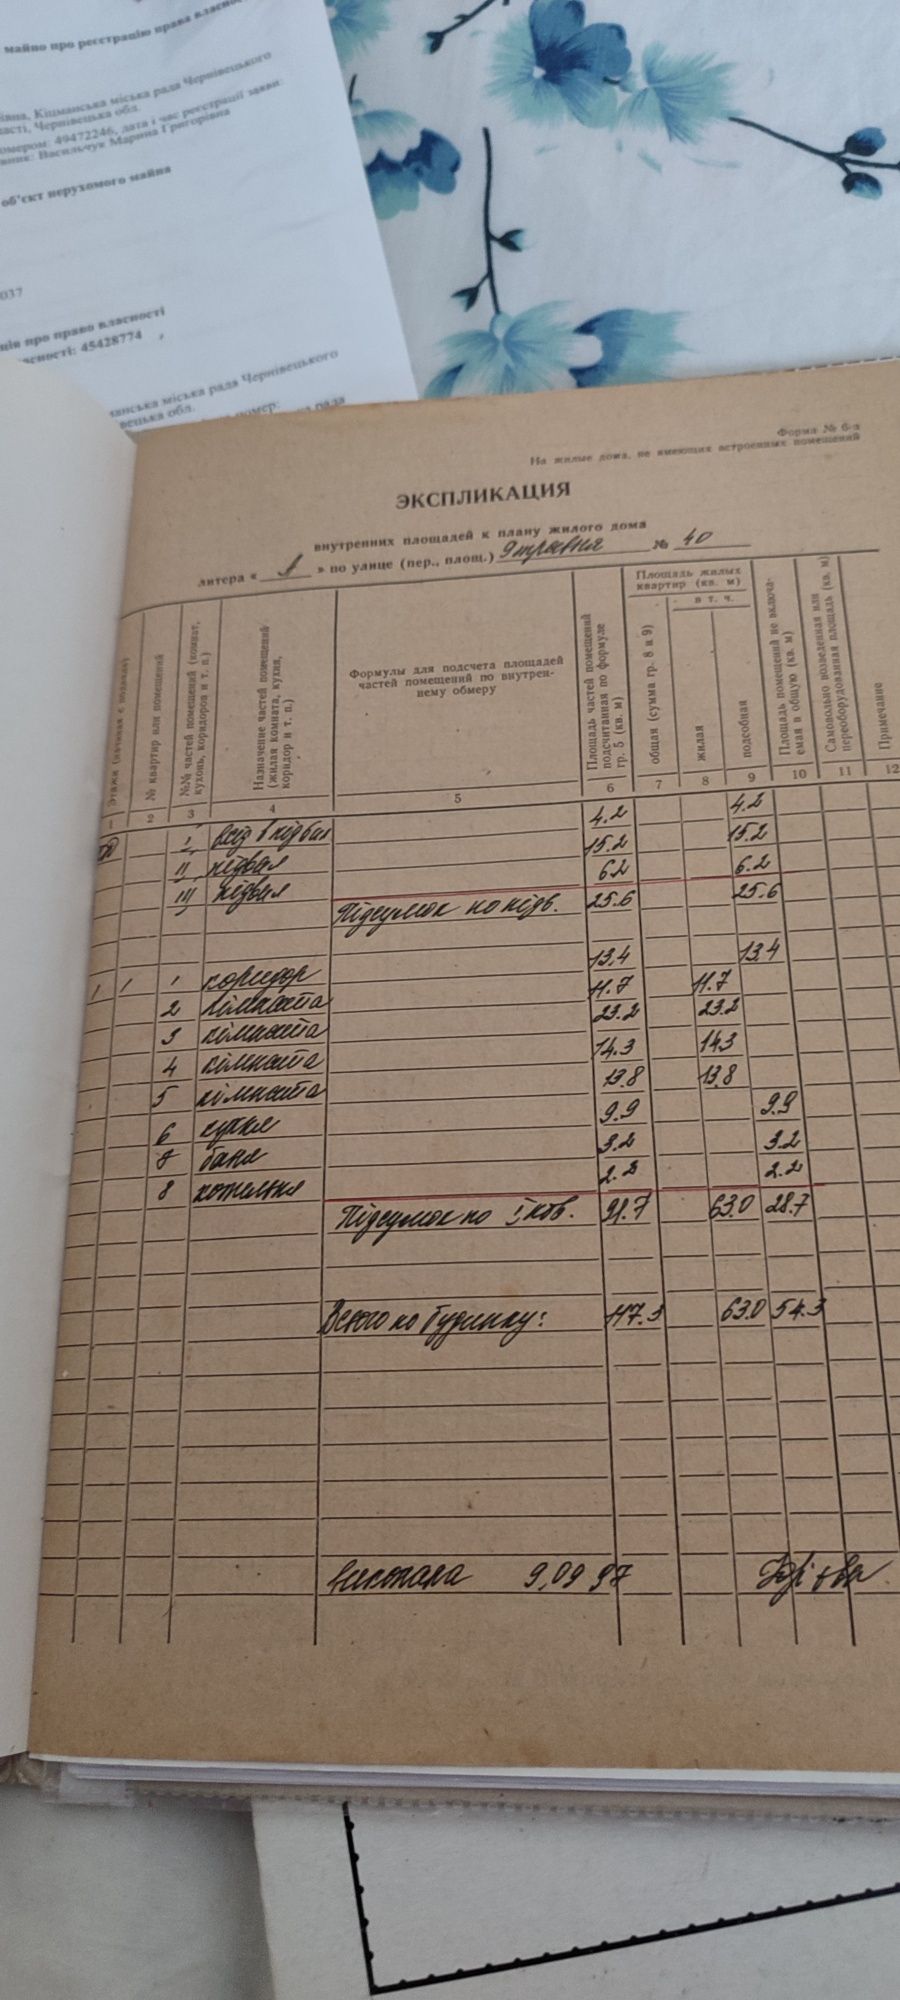 майно про реєстрацію права власност
івна, Кіцманська міська рада Чернівецького
ласті, Чернівецька обл.
омером: 49472246, дата і час реєстрації заяви:
вник: Васильчук Марина Григорівна
об'єкт нерухомого майна
037
ців про право власності
сності: 45428774 ,
манська міська рада Чернівецького
вецька обл.
номер:
рада
Форма № 6-а
На жилые дома, не имеющих встроенных помещений
ЭКСПЛИКАЦИЯ
внутренних площадей к плану жилого дома
литера « А » по улице (пер., площ.) 9 травня № 40
Этажи (начиная с подвала)
№ квартир или помещений
№№ частей помещений (комнат, кухонь, коридоров и т. п.)
Назначение частей помещений (жилая комната, кухня, коридор и т. п.)
Формулы для подсчета площадей частей помещений по внутреннему обмеру
Площадь частей помещений подсчитанная по формуле гр. 5 (кв. м)
Площадь жилых квартир (кв. м)
общая (сумма гр. 8 и 9)
в т. ч.
жилая
подсобная
Площадь помещений не включаемая в общую (кв. м)
Самовольно возведенная или переоборудованная площадь (кв. м)
Примечание
1 2 3 4 5 6 7 8 9 10 11 12
I вхід в підвал 4.2 4.2
II підвал 15.2 15.2
III підвал 6.2 6.2
Підсумок по підв. 25.6 25.6
1 1 1 коридор 13.4 13.4
2 кімната 11.7 11.7
3 кімната 23.2 23.2
4 кімната 14.3 14.3
5 кімната 13.8 13.8
6 кухня 9.9 9.9
7 баня 3.2 3.2
8 котельня 2.2 2.2
Підсумок по I пов. 91.7 63.0 28.7
Всього по будинку: 117.3 63.0 54.3
9.09 97